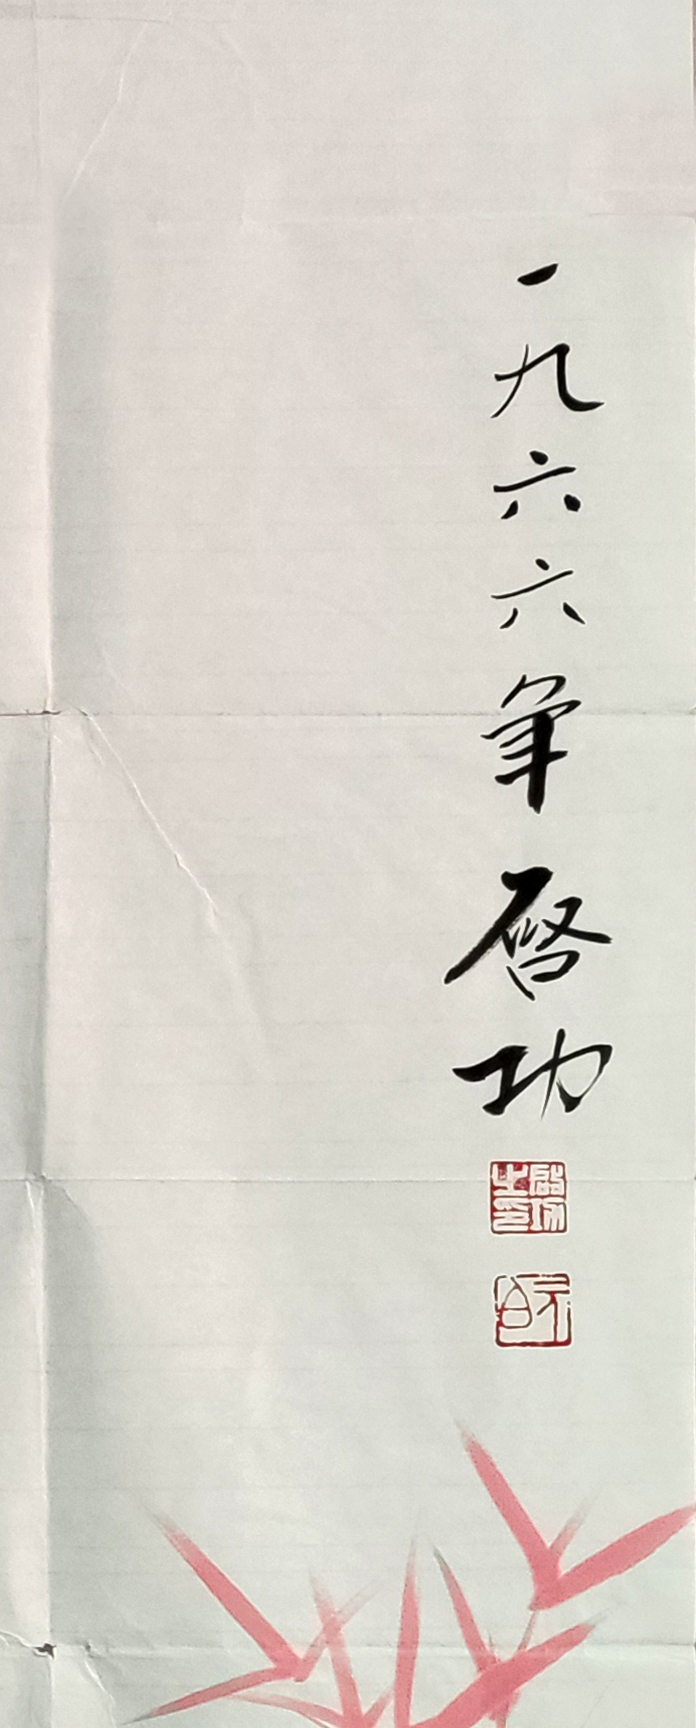 一九六六年 启功
启功之印
元白